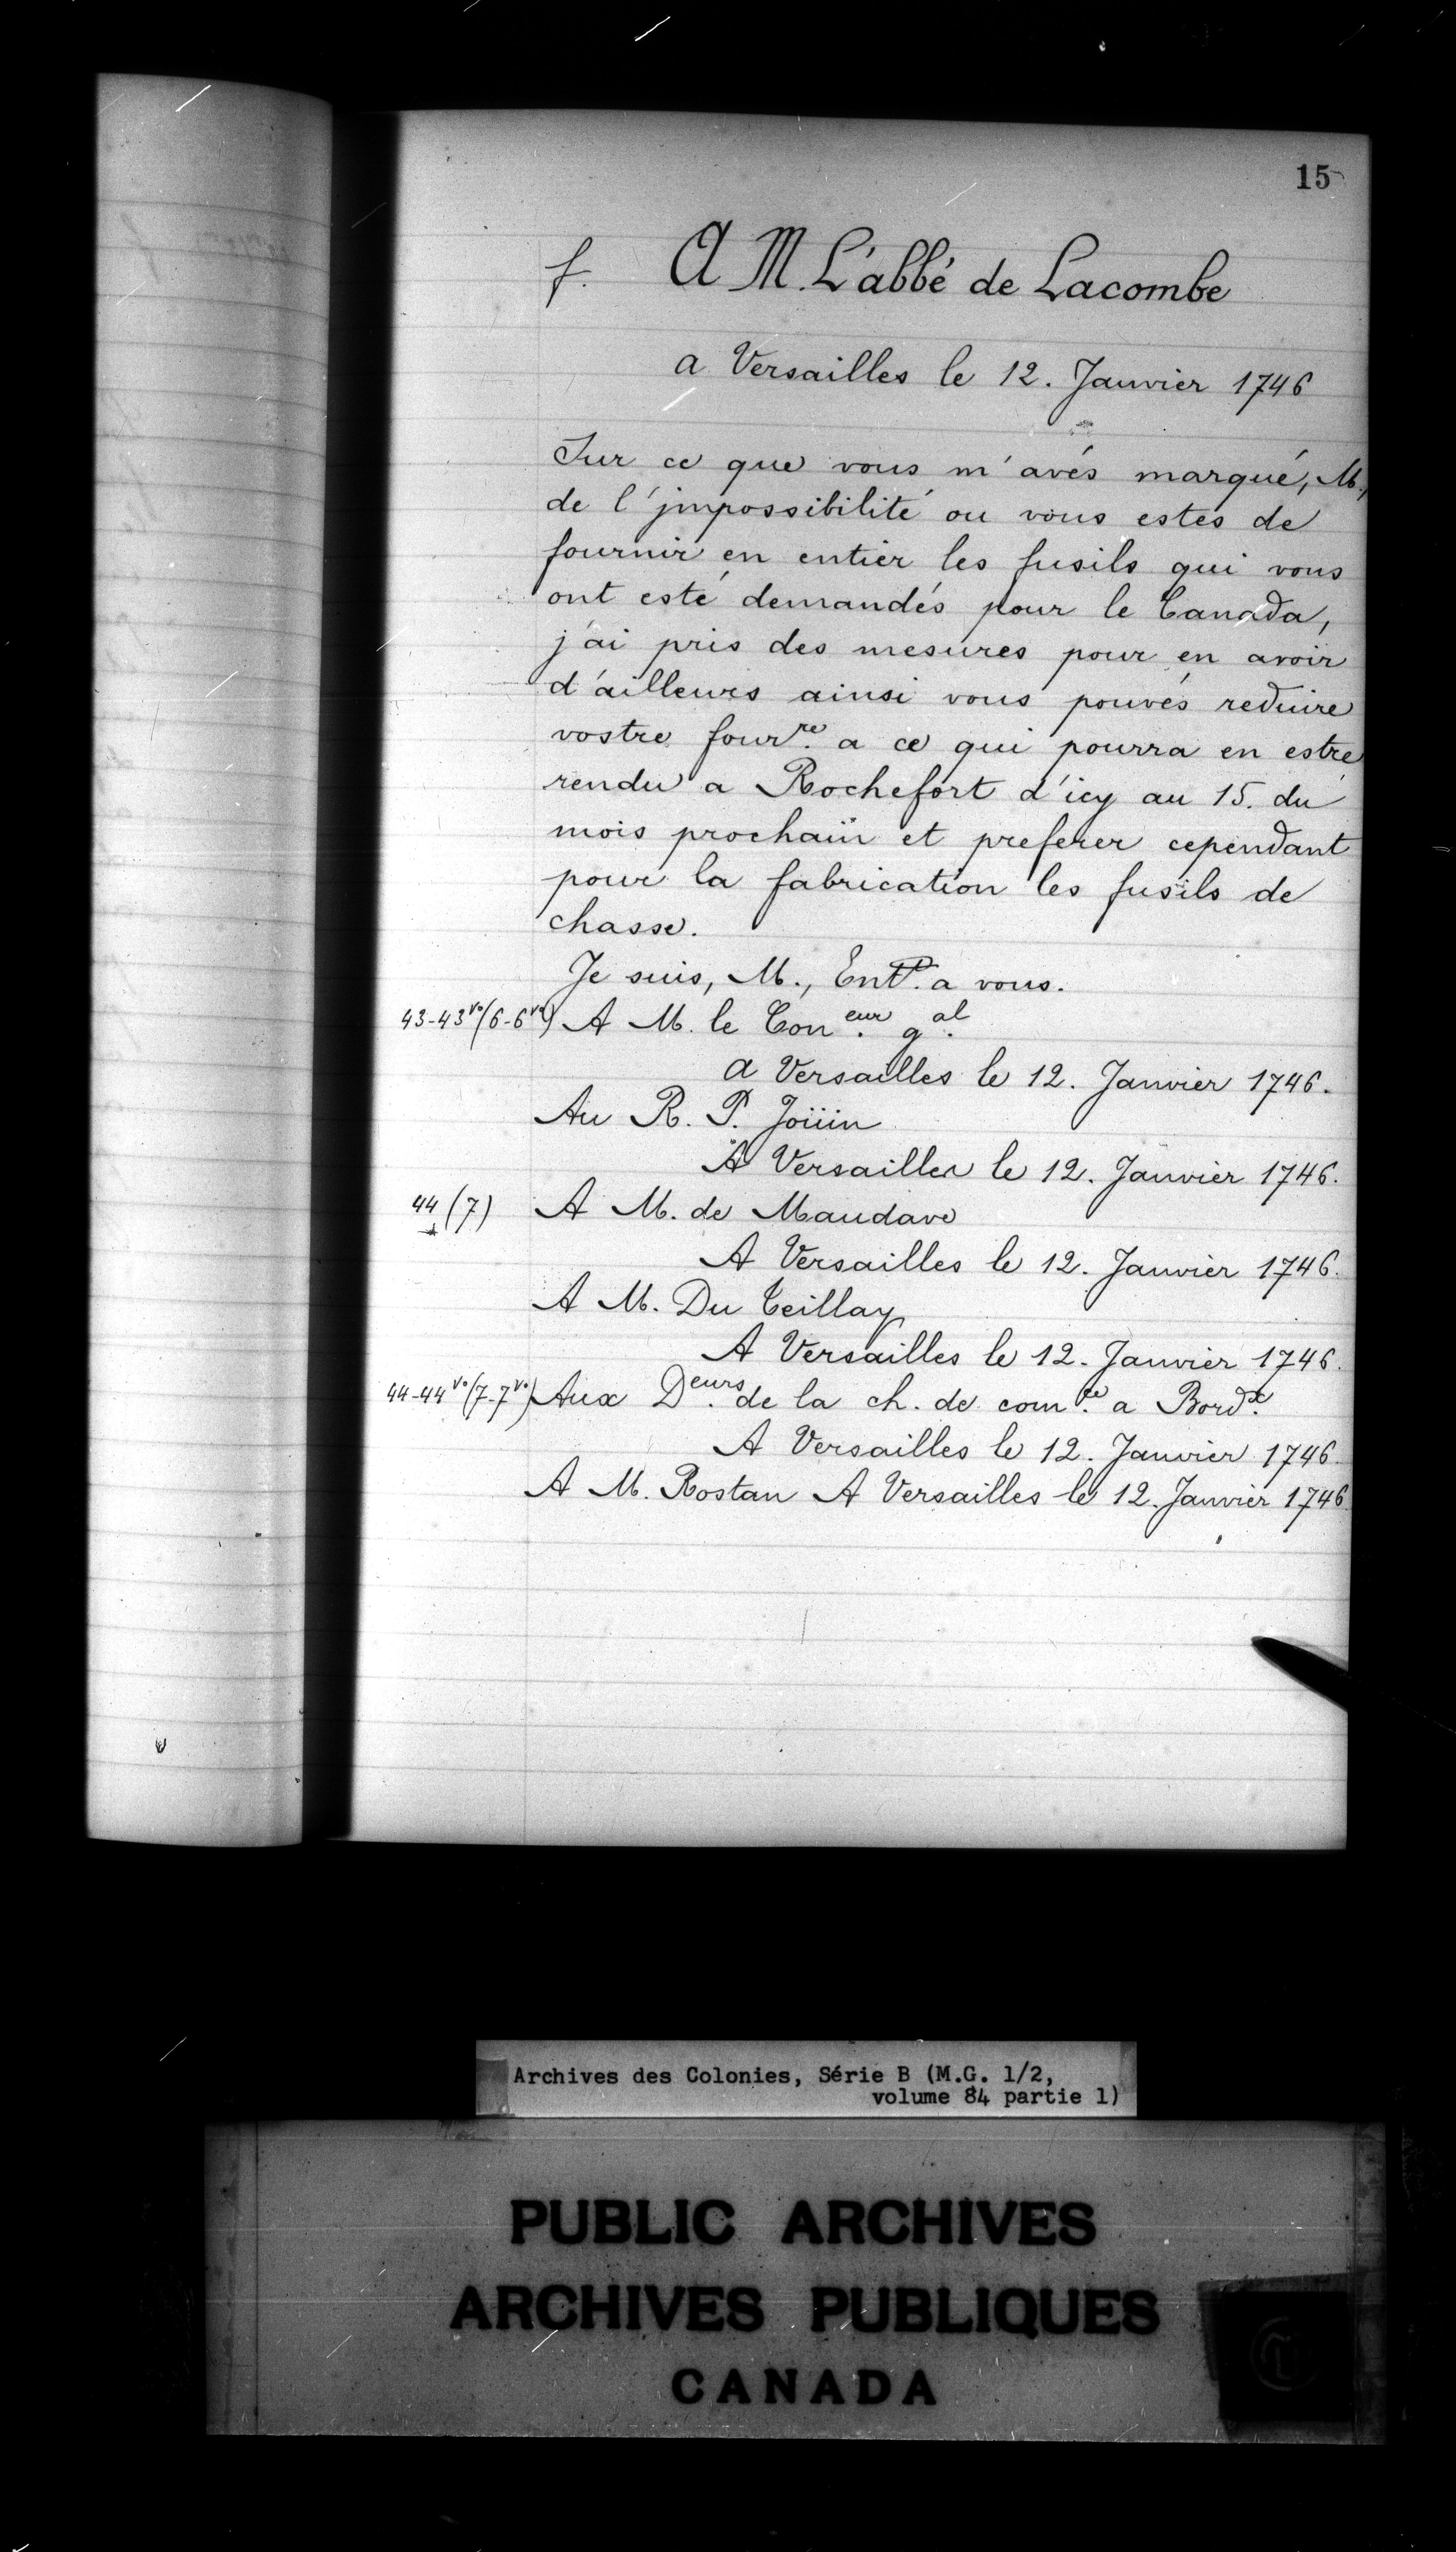 15
f. A M. L'abbé de Lacombe
a Versailles le 12. Janvier 1746
Sur ce que vous m'avés marqué, M.,
de l'jmpossibilité ou vous estes de
fournir en entier les fusils qui vous
ont esté demandés pour le Canada,
j'ai pris des mesures pour en avoir
d'ailleurs ainsi vous pouvés reduire
vostre four.re a ce qui pourra en estre
rendu a Rochefort d'icy au 15. du
mois prochain et preferer cependant
pour la fabrication les fusils de
chasse.
Je suis, M., Ent.t a vous.
43-43vo (6-6vo) A M. le Con.eur g.al
a Versailles le 12. Janvier 1746.
Au R. P. Joüin
A Versailles le 12. Janvier 1746.
44 (7) A M. de Maudave
A Versailles le 12. Janvier 1746.
A M. Du Teillay
A Versailles le 12. Janvier 1746.
44-44vo (7-7vo) Aux D.eurs de la ch. de com.ce a Bord.x
A Versailles le 12. Janvier 1746.
A M. Rostan A Versailles le 12. Janvier 1746
Archives des Colonies, Série B (M.G. 1/2,
volume 84 partie 1)
PUBLIC ARCHIVES
ARCHIVES PUBLIQUES
CANADA